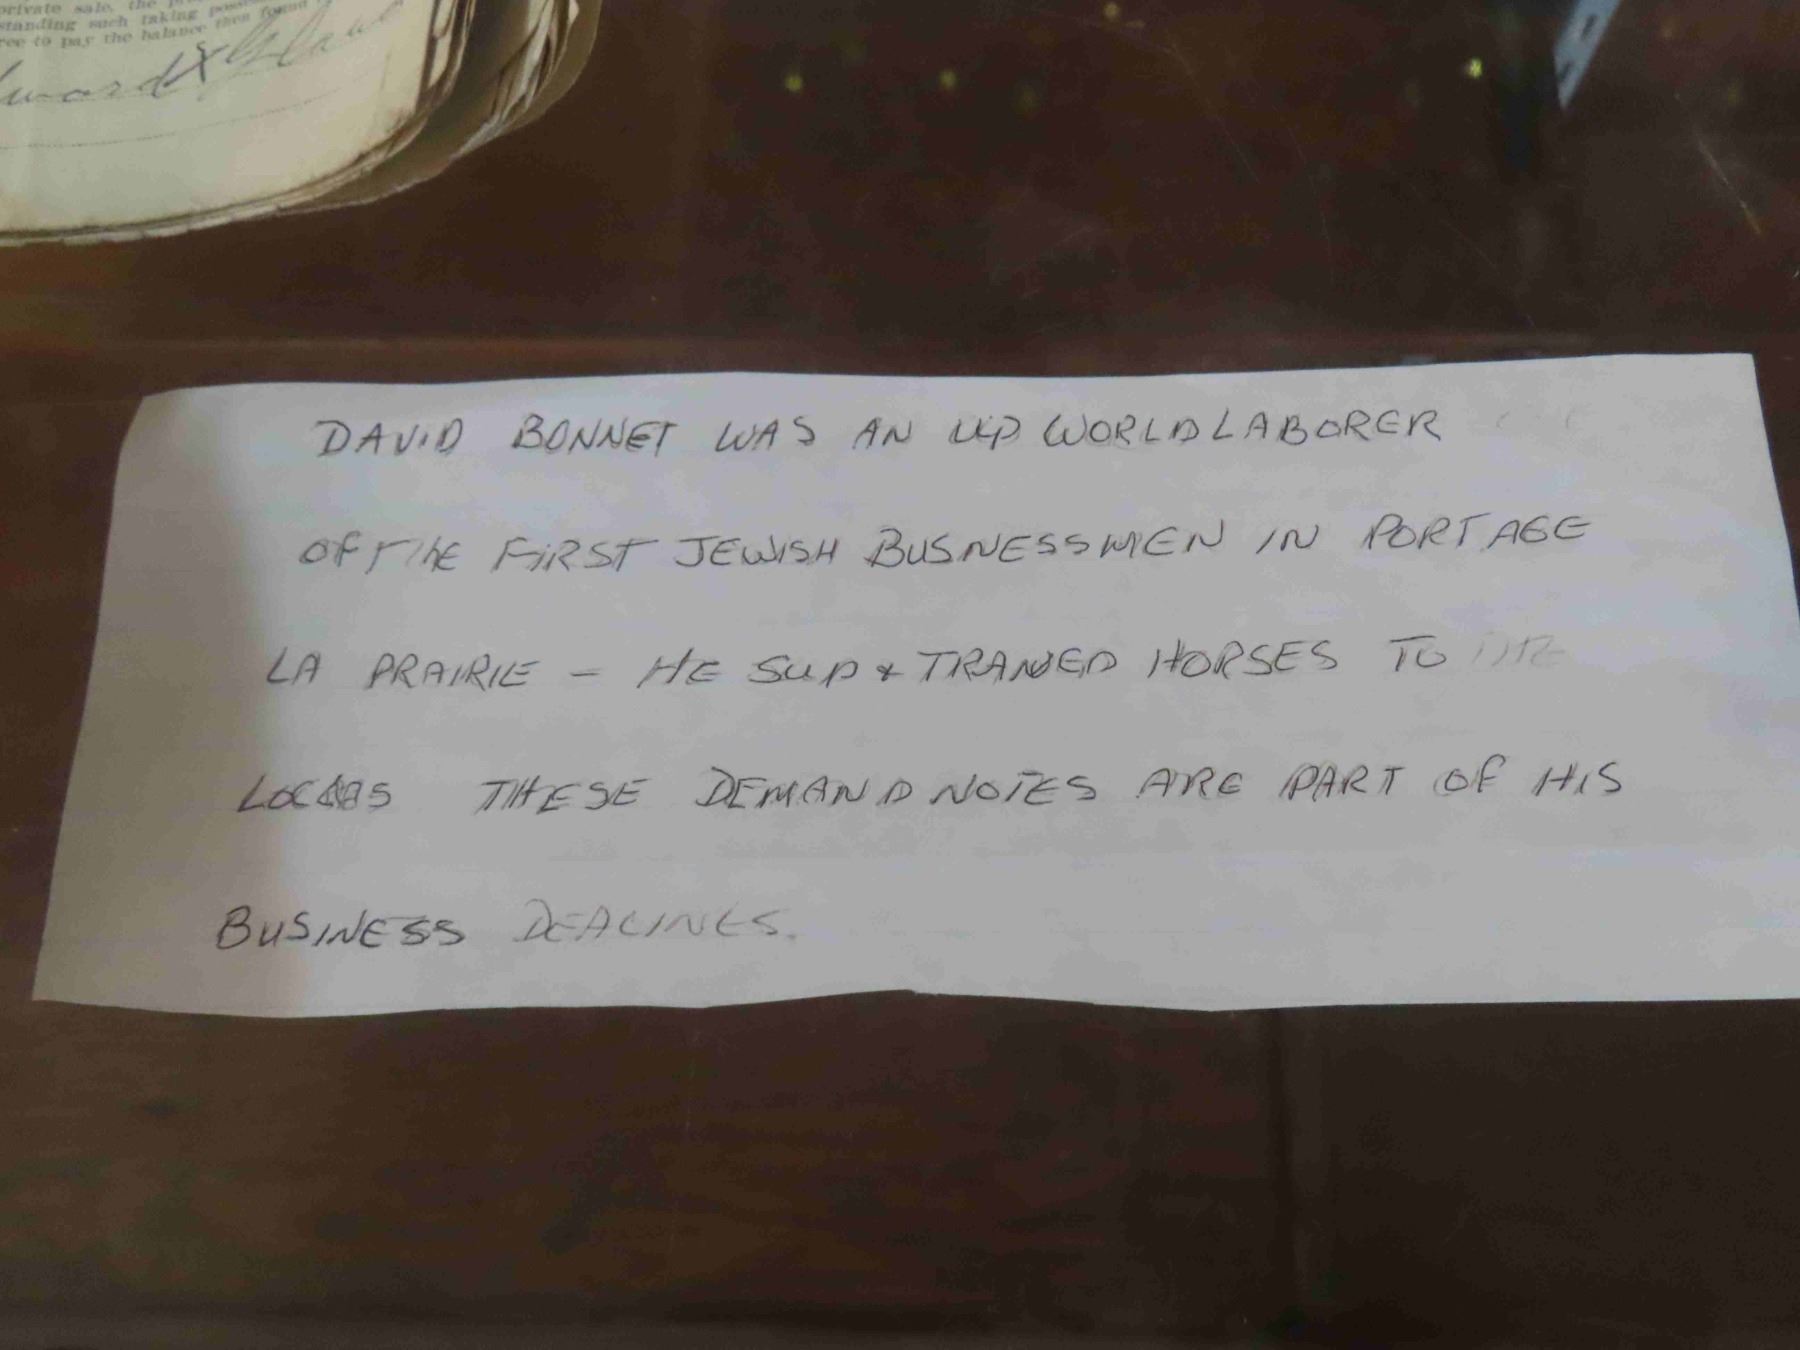 private sale, the
standing such taking
ree to pay the balance then found
DAVID BONNET WAS AN UP WORLD LABORER
OF THE FIRST JEWISH BUSNESSMEN IN PORTAGE
LA PRAIRIE - HE SUP & TRANED HORSES TO THE
LOCALS THESE DEMAND NOTES ARE PART OF HIS
BUSINESS DEALINGS.